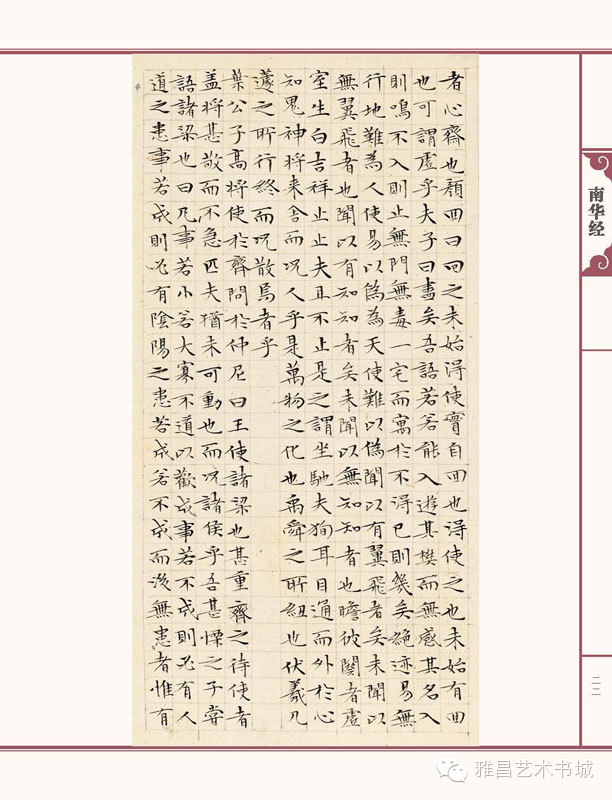 者心齋也顏回曰回之未始得使實自回也得使之也未始有回
也可謂虛乎夫子曰盡矣吾語若若能入遊其樊而無感其名入
則鳴不入則止無門無毒一宅而寓於不得已則幾矣絕迹易無
行地難為人使易以偽為天使難以偽聞以有翼飛者矣未聞以
無翼飛者也聞以有知知者矣未聞以無知知者也瞻彼闋者虛
室生白吉祥止止夫且不止是之謂坐馳夫狥耳目通而外於心
知鬼神將来舍而况人乎是萬物之化也禹舜之所紐也伏羲几
蘧之所行終而况散焉者乎
葉公子高將使於齊問於仲尼曰王使諸梁也甚重齊之待使者
盖將甚敬而不急匹夫猶未可動也而况諸侯乎吾甚慄之子嘗
語諸梁也曰凡事若小若大寡不道以歡成事若不成則必有人
道之患事若成則必有陰陽之患若成若不成而後無患者惟有
南华经
二二
雅昌艺术书城